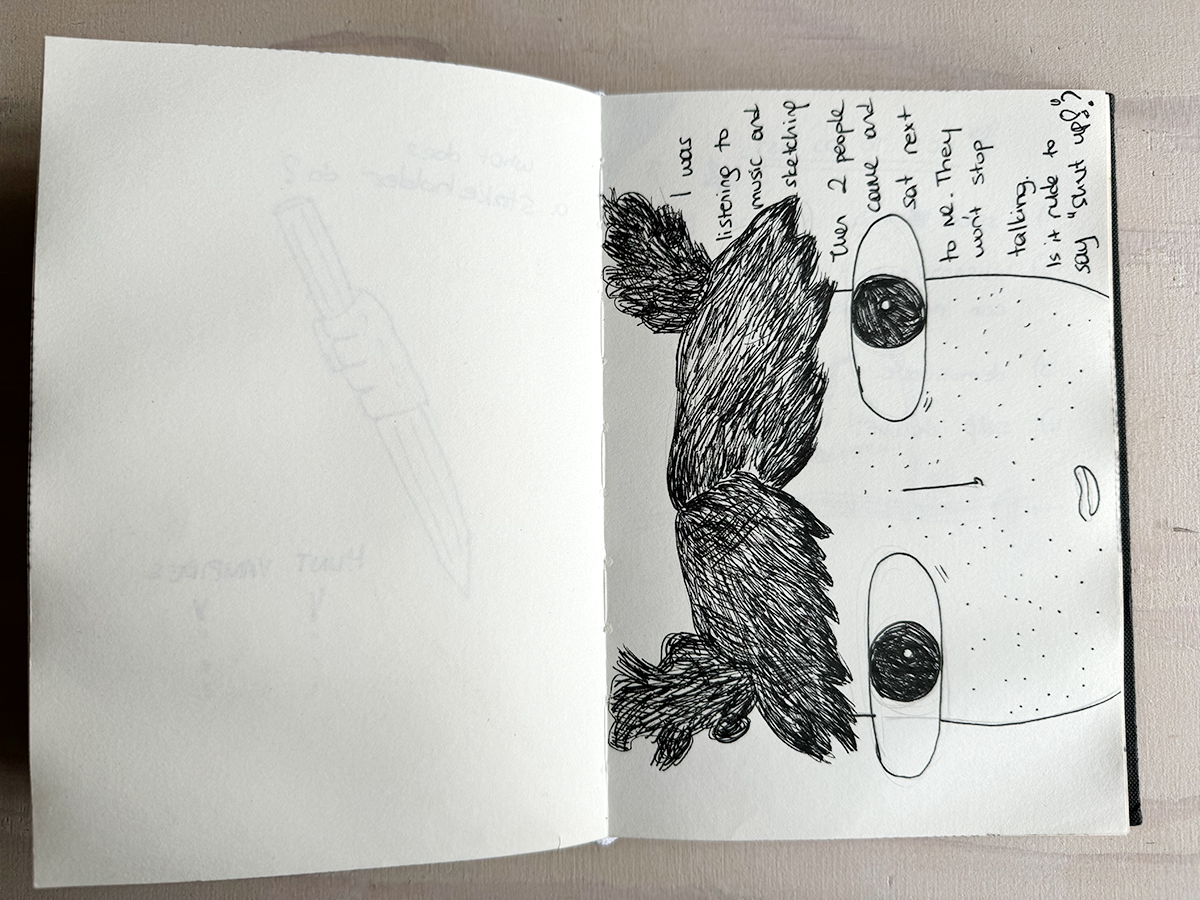 what does
a stakeholder do?
HUNT VAMPIRES
I was
listening to
music and
sketching
Then 2 people
came and
sat next
to me. They
won't stop
talking.
Is it rude to
say "shut up"?